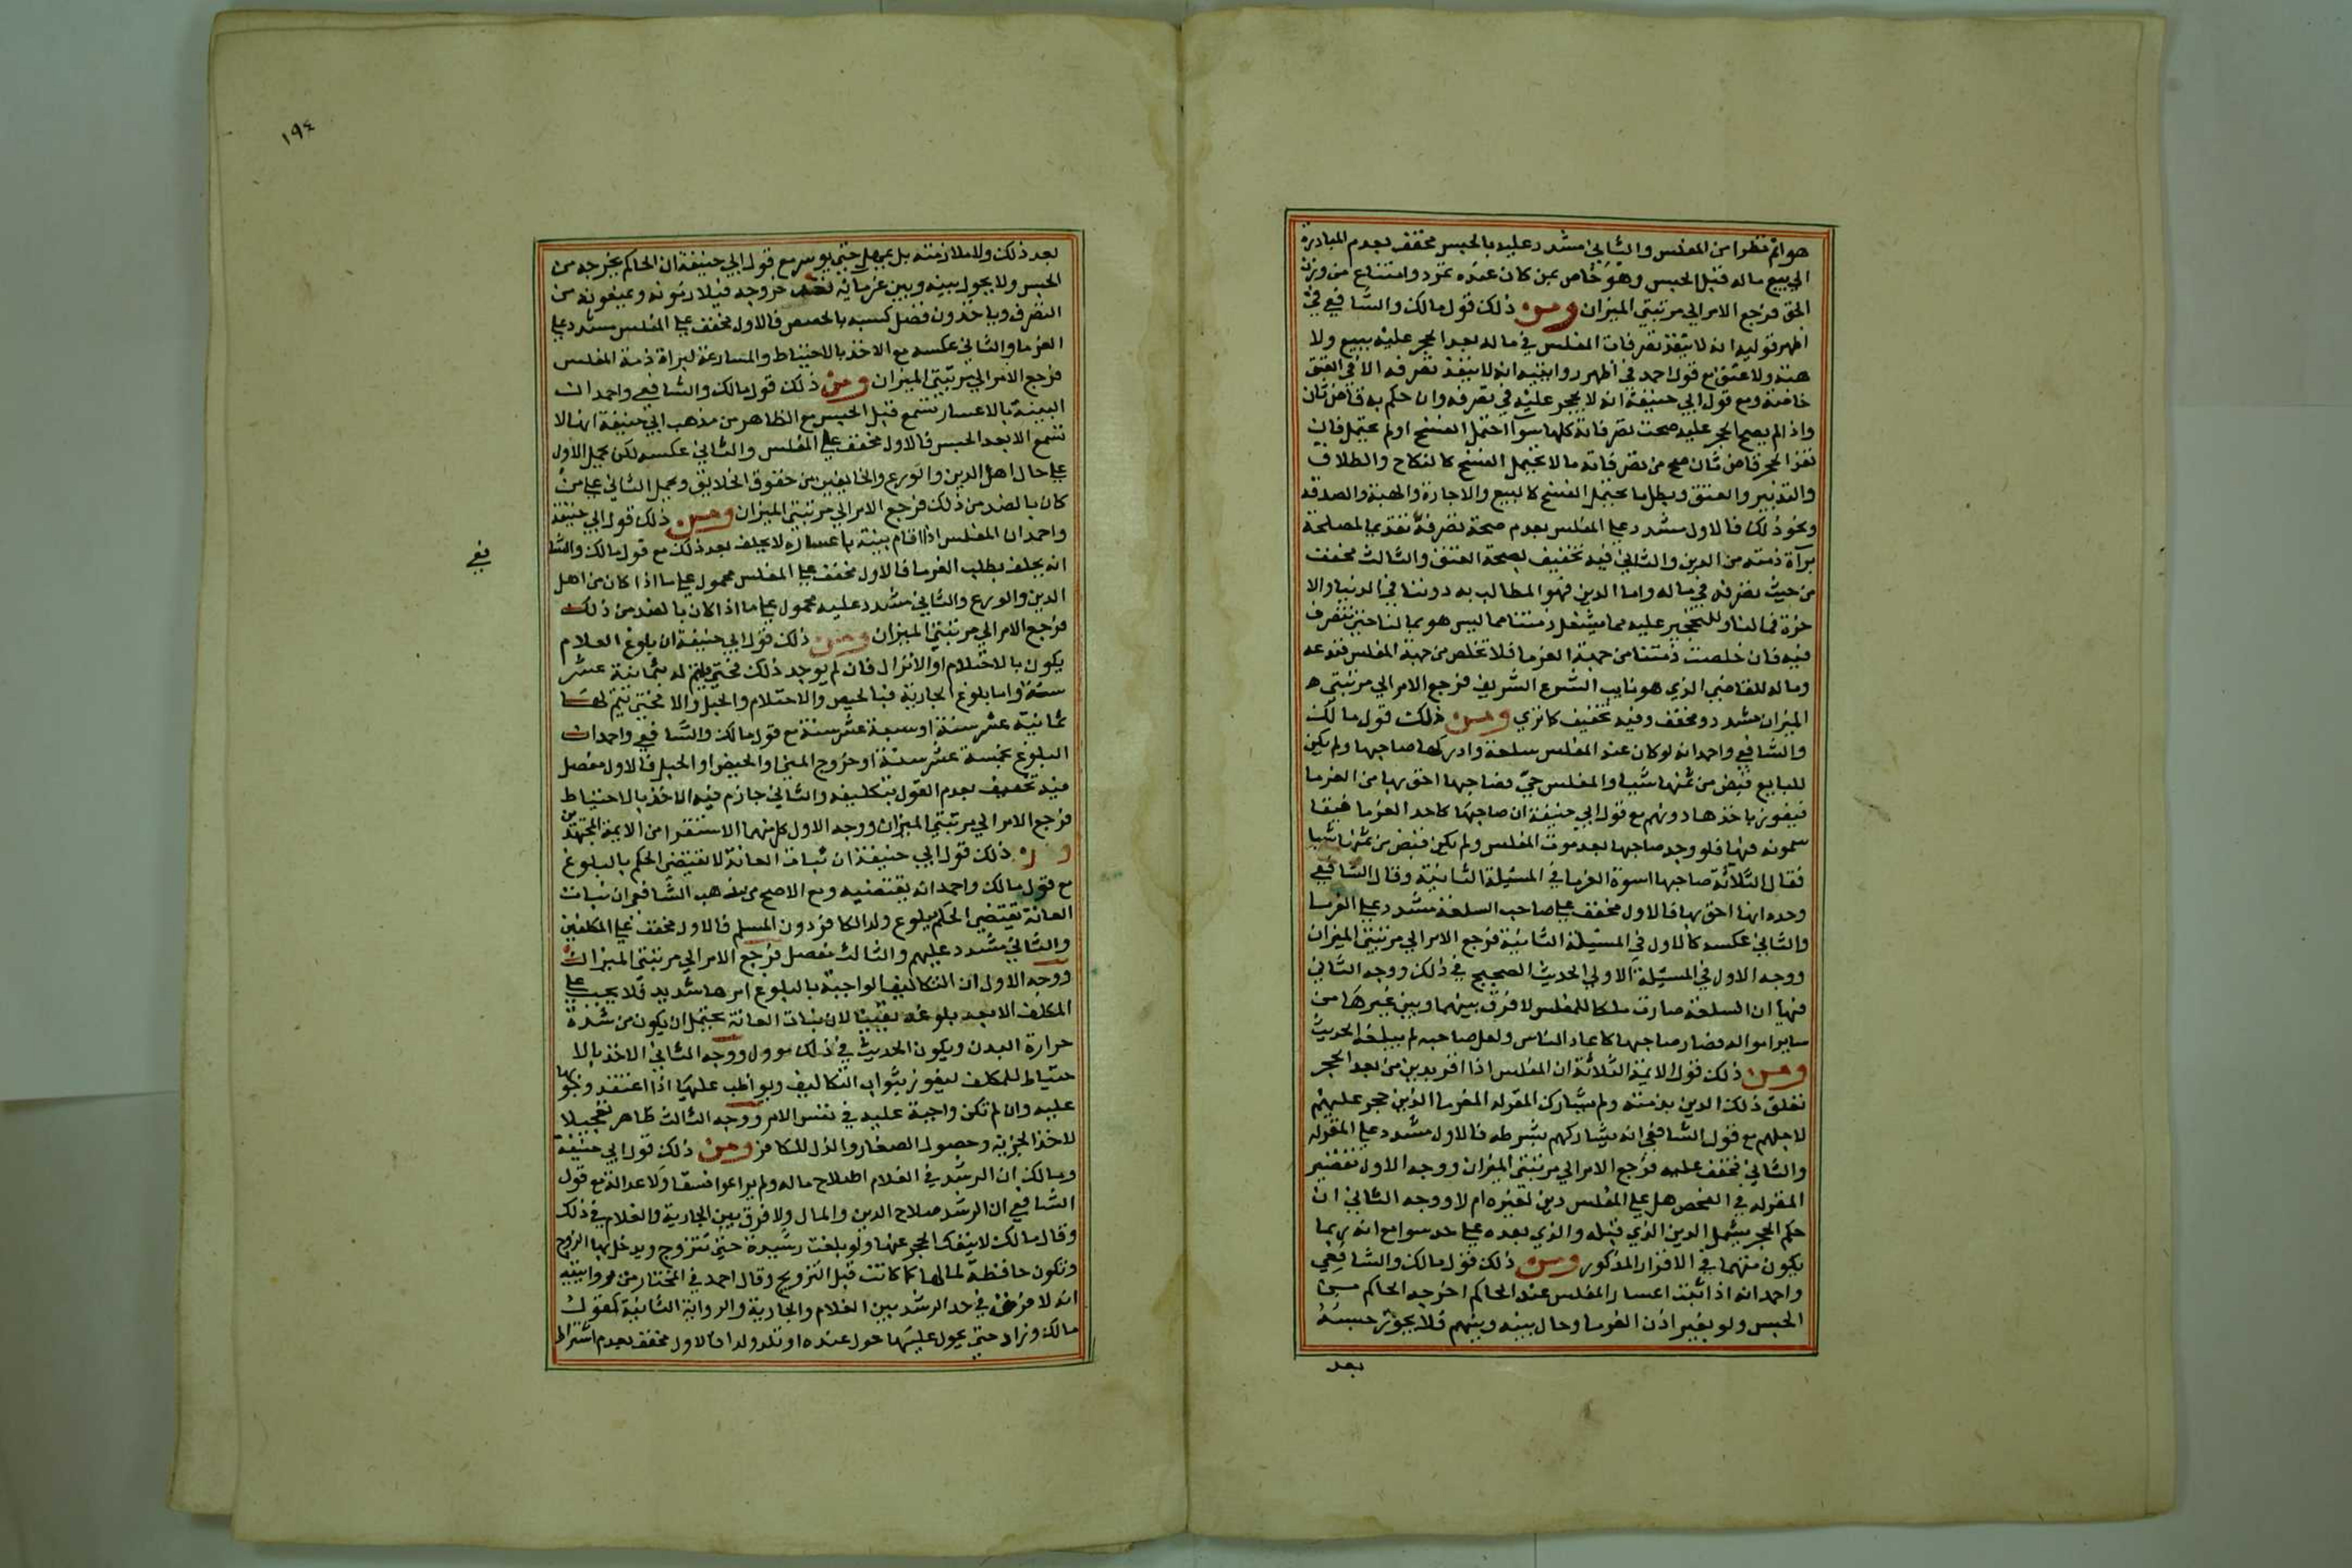 هو اتم نظرا من المفلس والثاني مشدد عليه بالحبس مخفف بعدم المبادرة
الي بيع ماله قبل الحبس وهو خاص بمن كان عنده تمرد وامتناع من وزن
الحق فرجع الامر الي مرتبتي الميزان ومن ذلك قول مالك والشافعي في
اظهر قوليه انه لا ينفذ تصرفات المفلس في ماله بعد الحجر عليه ببيع ولا
هبة ولا عتق مع قول احمد في اظهر روايتيه انه لا ينفذ تصرفه الا في العتق
خاصة ومع قول ابي حنيفة انه لا يحجر عليه في تصرفه وان حكم به قاض ثان
واذا لم يصح الحجر عليه صحت تصرفاته كلها سوآ احتمل الفسخ او لم يحتمل فان
نفذ الحجر قاض ثان صح من تصرفاته ما لا يحتمل الفسخ كالنكاح والطلاق
والتدبير والعتق وبطل ما يحتمل الفسخ كالبيع والاجارة والهبة والصدقة
ونحو ذلك فالاول مشدد علي المفلس بعدم صحة تصرفه تقديما لمصلحة
برآة ذمته من الدين والثاني فيه تخفيف بصحة العتق والثالث مخفف
من حيث تصرفه في ماله واما الدين فهو المطالب به دوننا في الدنيا والا
خرة فما لنا وللتحجير عليه مما يشغل ذمتنا مما ليس هو بما لنا حتي نتصرف
فيه فان خلصت ذمتنا من جهة الغرما فلا تخلص من جهة المفلس فندعه
وماله للقاضي الذي هو نايب الشرع الشريف فرجع الامر الي مرتبتي
الميزان مشدد ومخفف وفيه تخفيف كما تري ومن ذلك قول مالك
والشافعي واحمد انه لو كان عند المفلس سلعة وادركها صاحبها ولم يكن
للبايع قبض من ثمنها شيا والمفلس حي فصاحبها احق بها من الغرما
فيفوز باخذها دونهم مع قول ابي حنيفة ان صاحبها كاحد الغرما فيقا
سمونه فيها فلو وجد صاحبها بعد موت المفلس ولم يكن قبض من ثمنها شيا
فقال الثلاثة صاحبها اسوة الغرما في المسئلة الثانية وقال الشافعي
وحده انه احق بها فالاول مخفف علي صاحب السلعة مشدد علي الغرما
والثاني عكسه كالاول في المسئلة الثانية فرجع الامر الي مرتبتي الميزان
ووجه الاول في المسئلة الاولي الحديث الصحيح في ذلك ووجه الثاني
فيها ان السلعة صارت ملكا للمفلس لا فرق بينها وبين غيرها من
ساير امواله فصار صاحبها كاحاد الناس ولعل صاحبه لم يبلغه الحديث
ومن ذلك قول الايمة الثلاثة ان المفلس اذا اقر بدين من بعد الحجر
تعلق ذلك الدين بذمته ولم يشارك المقر له الغرما الذين حجر عليهم
لاجلهم مع قول الشافعي انه يشاركهم بشرطه فالاول مشدد علي المقر له
والثاني مخفف عليه فرجع الامر الي مرتبتي الميزان ووجه الاول تقصير
المقر له في الفحص هل علي المفلس دين لغيره ام لا ووجه الثاني ان
حكم الحجر يشمل الدين الذي قبله والذي بعده علي حد سوا مع انه ربما
يكون متهما في الاقرار المذكور ومن ذلك قول مالك والشافعي
واحمد انه اذا ثبت اعسار المفلس عند الحاكم اخرجه الحاكم من
الحبس ولو بغير اذن الغرما وحال بينه وبينهم فلا يجوز حبسه
بعد
١٩٤
بعد ذلك ولا ملازمته بل يمهل حتي يوسر مع قول ابي حنيفة ان الحاكم يخرجه من
الحبس ولا يحول بينه وبين غرمايه بعد خروجه فيلازمونه ويمنعونه من
التصرف وياخذون فضل كسبه بالحصص فالاول مخفف علي المفلس مشدد علي
الغرما والثاني عكسه مع الاخذ بالاحتياط والمسارعة لبراة ذمة المفلس
فرجع الامر الي مرتبتي الميزان ومن ذلك قول مالك والشافعي واحمد ان
البينة بالاعسار تسمع قبل الحبس مع الظاهر من مذهب ابي حنيفة انها لا
تسمع الا بعد الحبس فالاول مخفف علي المفلس والثاني عكسه لكن يحمل الاول
علي حال اهل الدين والورع والخايفين من حقوق الخلايق ويحمل الثاني علي من
كان بالضد من ذلك فرجع الامر الي مرتبتي الميزان ومن ذلك قول ابي حنيفة
واحمد ان المفلس اذا اقام بينة باعساره لا يحلف بعد ذلك مع قول مالك والشا
فعي
انه يحلف بطلب الغرما فالاول مخفف علي المفلس محمول علي ما اذا كان من اهل
الدين والورع والثاني مشدد عليه محمول علي ما اذا كان بالضد من ذلك
فرجع الامر الي مرتبتي الميزان ومن ذلك قول ابي حنيفة ان بلوغ الغلام
يكون بالاحتلام او الانزال فان لم يوجد ذلك فحتي يتم له ثمانية عشر
سنة واما بلوغ الجارية فبالحيض والاحتلام والحبل والا فحتي يتم لها
ثمانية عشر سنة او سبعة عشر سنة مع قول مالك والشافعي واحمد ان
البلوغ بخمسة عشر سنة او خروج المني او الحيض او الحبل فالاول مفصل
فيه تخفيف بعدم القول بتكليفه والثاني جازم فيه الاخذ بالاحتياط
فرجع الامر الي مرتبتي الميزان ووجه الاول كل منهما الاستقرا من الايمة المجتهدين
ومن ذلك قول ابي حنيفة ان نبات العانة لا يقتضي الحكم بالبلوغ
مع قول مالك واحمد انه يقتضيه ومع الاصح من مذهب الشافعي ان نبات
العانة يقتضي الحكم ببلوغ ولد الكافر دون المسلم فالاول مخفف علي المكلفين
والثاني مشدد عليهم والثالث مفصل فرجع الامر الي مرتبتي الميزان
ووجه الاول ان التكاليف الواجبة بالبلوغ امرها شديد فلا يجب علي
المكلف الا بعد بلوغه يقينا لان نبات العانة يحتمل ان يكون من شدة
حرارة البدن ويكون الحديث في ذلك موول ووجه الثاني الاخذ بالا
حتياط للمكلف ليفوز بثواب التكاليف ويواظب عليها اذا اعتقد وجوبها
عليه وان لم تكن واجبة عليه في نفس الامر ووجه الثالث ظاهر تعجيلا
لاخذ الجزية وحصول الصغار والذل للكافر ومن ذلك قول ابي حنيفة
ومالك ان الرشد في الغلام اصلاح ماله ولم يراعوا فسقا ولا عدالة مع قول
الشافعي ان الرشد صلاح الدين والمال ولا فرق بين الجارية والغلام في ذلك
وقال مالك لا ينفك الحجر عنها ولو بلغت رشيدة حتي تتزوج ويدخل بها الزوج
وتكون حافظة لمالها كما كانت قبل التزويج وقال احمد في المختار من روايتيه
انه لا فرق في حد الرشد بين الغلام والجارية والرواية الثانية كقول
مالك وزاد حتي يحول عليها حول عنده او تلد ولدا فالاول مخفف بعدم اشتراط